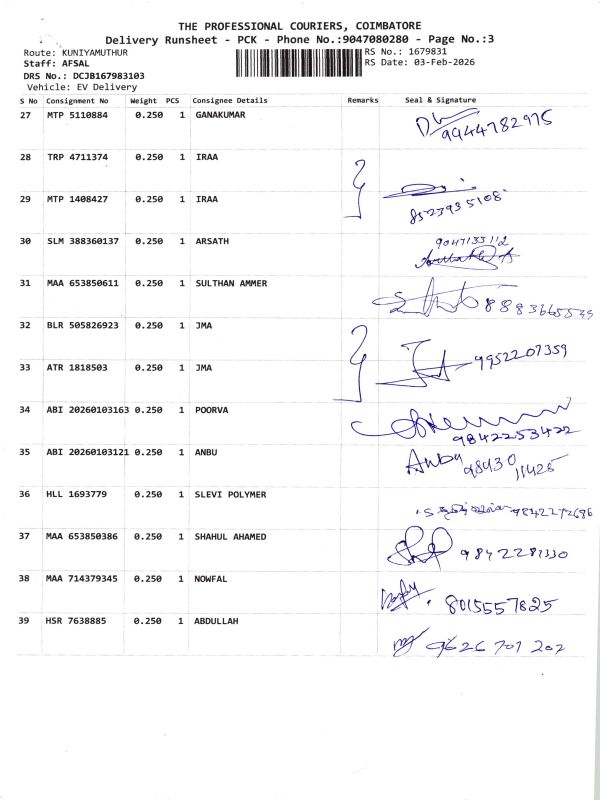 THE PROFESSIONAL COURIERS, COIMBATORE
Delivery Runsheet - PCK - Phone No.:9047080280 - Page No.:3
Route: KUNIYAMUTHUR
RS No.: 1679831
Staff: AFSAL
RS Date: 03-Feb-2026
DRS No.: DCJB167983103
Vehicle: EV Delivery
S No Consignment No Weight PCS Consignee Details Remarks Seal & Signature
27 MTP 5110884 0.250 1 GANAKUMAR
9944782975
28 TRP 4711374 0.250 1 IRAA
29 MTP 1408427 0.250 1 IRAA
8523935108
30 SLM 388360137 0.250 1 ARSATH
31 MAA 653850611 0.250 1 SULTHAN AMMER
32 BLR 505826923 0.250 1 JMA
9952207359
33 ATR 1818503 0.250 1 JMA
34 ABI 20260103163 0.250 1 POORVA
9842253422
35 ABI 20260103121 0.250 1 ANBU
Anbu 98430
11425
36 HLL 1693779 0.250 1 SLEVI POLYMER
37 MAA 653850386 0.250 1 SHAHUL AHAMED
38 MAA 714379345 0.250 1 NOWFAL
8015557825
39 HSR 7638885 0.250 1 ABDULLAH
9626 701 202